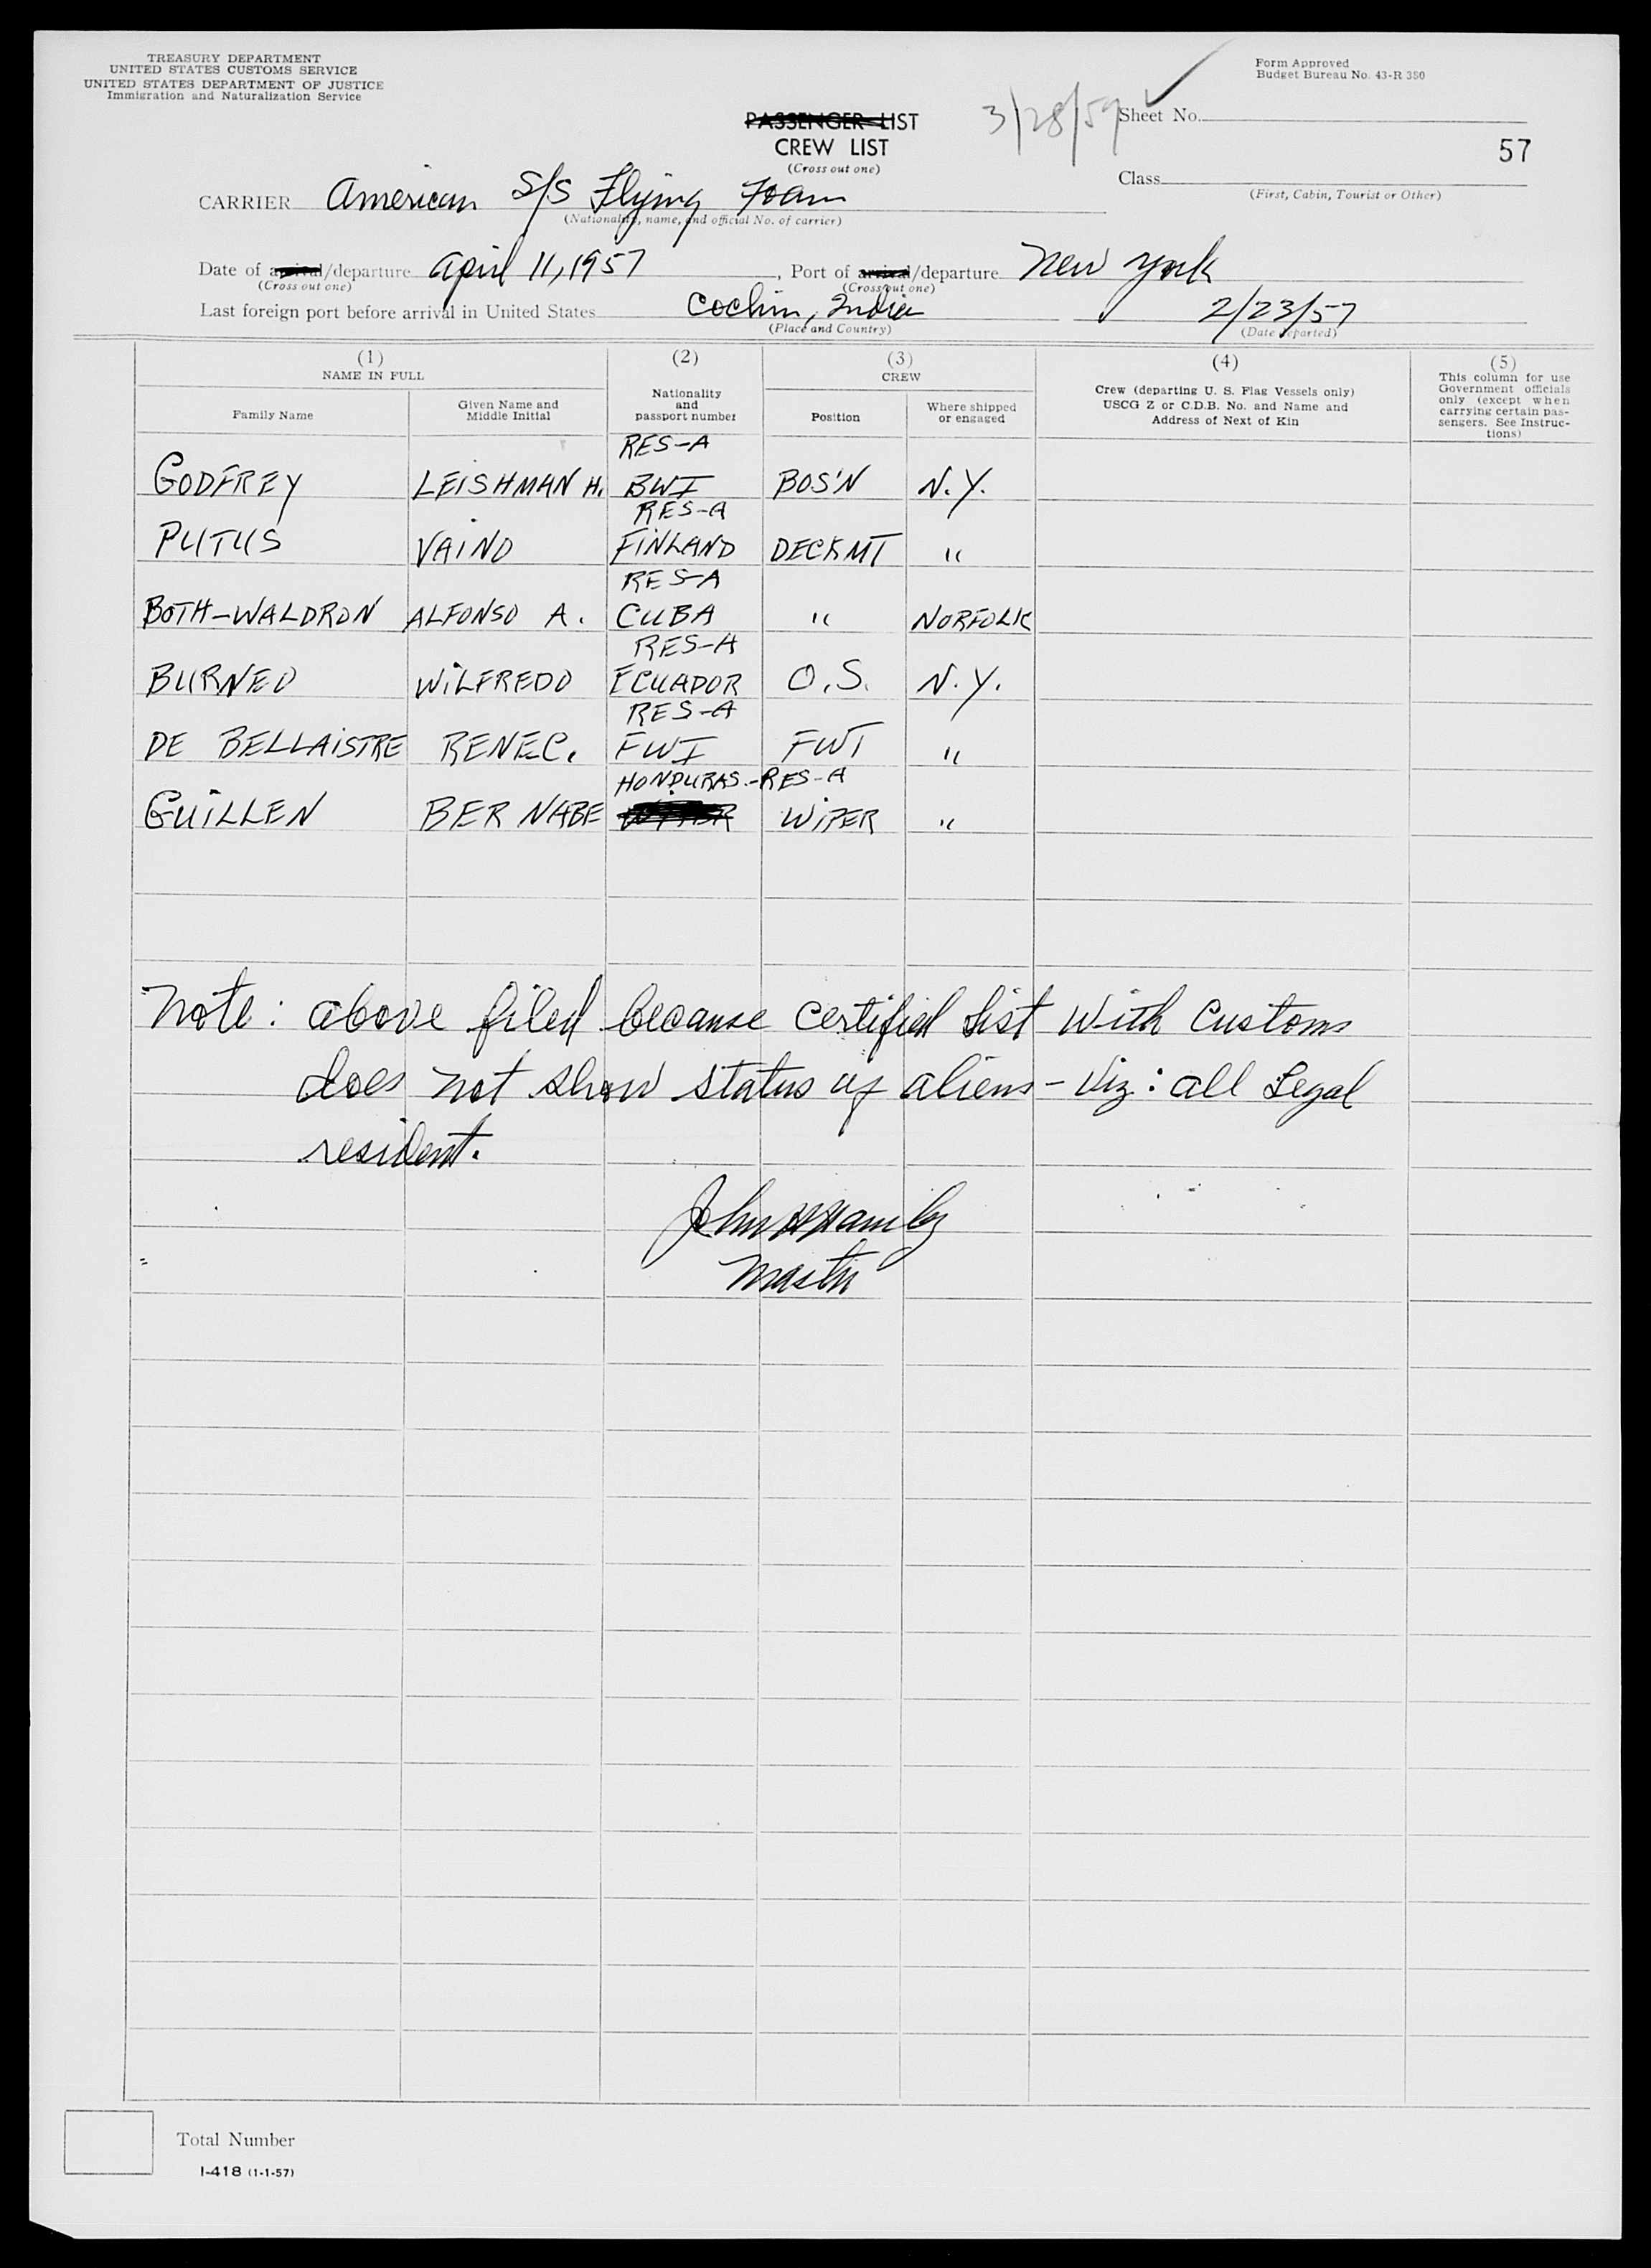 TREASURY DEPARTMENT
UNITED STATES CUSTOMS SERVICE
UNITED STATES DEPARTMENT OF JUSTICE
Immigration and Naturalization Service
Form Approved
Budget Bureau No. 43-R 380
PASSENGER LIST
CREW LIST
(Cross out one)
3/28/57
Sheet No.
57
Class
(First, Cabin, Tourist or Other)
CARRIER American S/S Flying Foam
(Nationality, name, and official No. of carrier)
Date of arrival/departure April 11, 1957, Port of arrival/departure New York
(Cross out one) (Cross out one)
Last foreign port before arrival in United States Cochin, India 2/23/57
(Place and Country) (Date departed)
(1) (2) (3) (4) (5)
NAME IN FULL CREW
Family Name
Given Name and Middle Initial
Nationality and passport number
Position
Where shipped or engaged
Crew (departing U. S. Flag Vessels only)
USCG Z or C.D.B. No. and Name and
Address of Next of Kin
This column for use
Government officials
only (except when
carrying certain pas-
sengers. See Instruc-
tions)
RES-A
GODFREY LEISHMAN H. BWI BOS'N N.Y.
RES-A
PUTUS VAINO FINLAND DECKMT "
RES-A
BOTH-WALDRON ALFONSO A. CUBA " NORFOLK
RES-A
BURNEO WILFREDO ECUADOR O.S. N.Y.
RES-A
DE BELLAISTRE RENE C. FWI FWT "
HONDURAS.-RES-A
GUILLEN BERNABE WIPER "
Note: above filed because certified list with Customs
does not show status of aliens - viz: all Legal
resident.
Master
Total Number
I-418 (1-1-57)